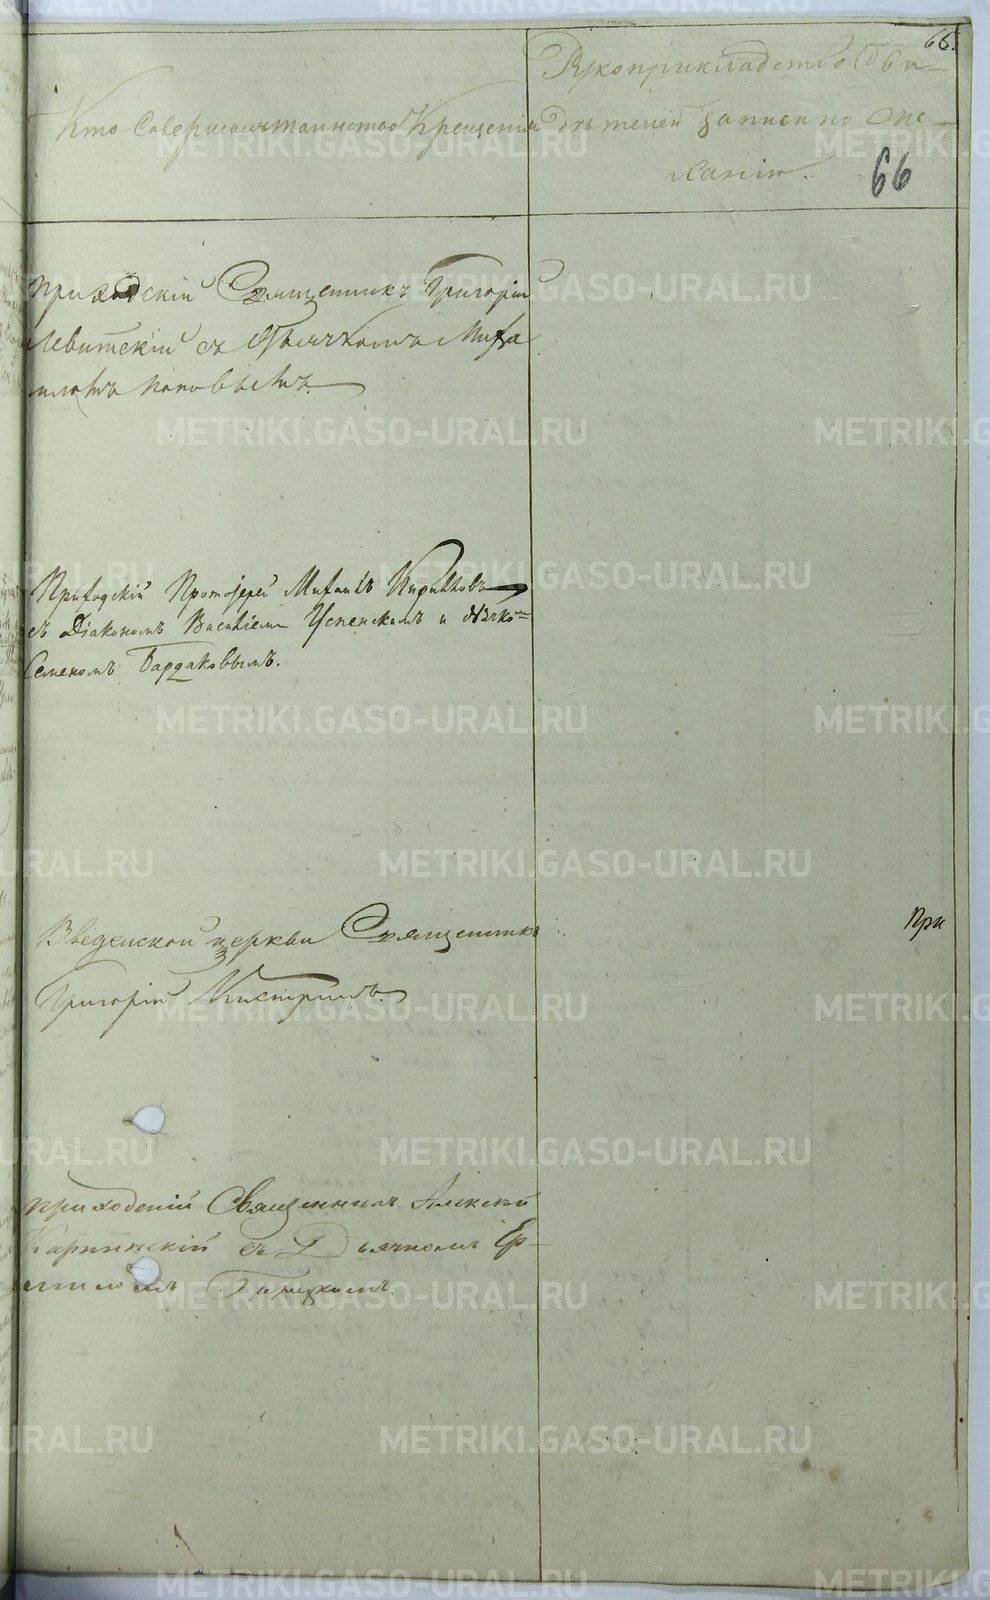 66.
Кто Совершалъ таинство Крещенія
Рукоприкладство Сви-
дѣтелей записи по же-
ланію.
66
Приходскій Священникъ Григорій
Левитскій съ Дьячкомъ Миха
иломъ Поповымъ
Приходскій Протоіерей Михаилъ
съ Діакономъ Василіемъ Успенскимъ и Дьячко=
Семеномъ Бардаковымъ.
При
Введенской церкви Священникъ
Григорій
приходскій Священникъ Алексѣй
Карпинскій съ Дьячкомъ Ер-
миломъ
METRIKI.GASO-URAL.RU